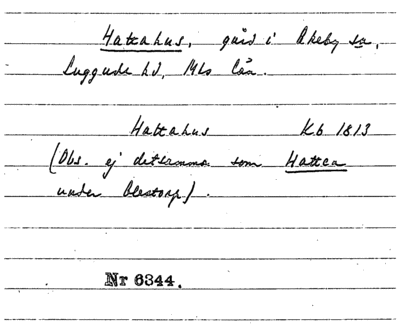 Hattahus, gård i Åkeby sn,
Luggude hd, Mlö län.
Hattahus Kb 1813
(Obs. ej detsamma som Hattea
under Olestorp).
Nr 6344.